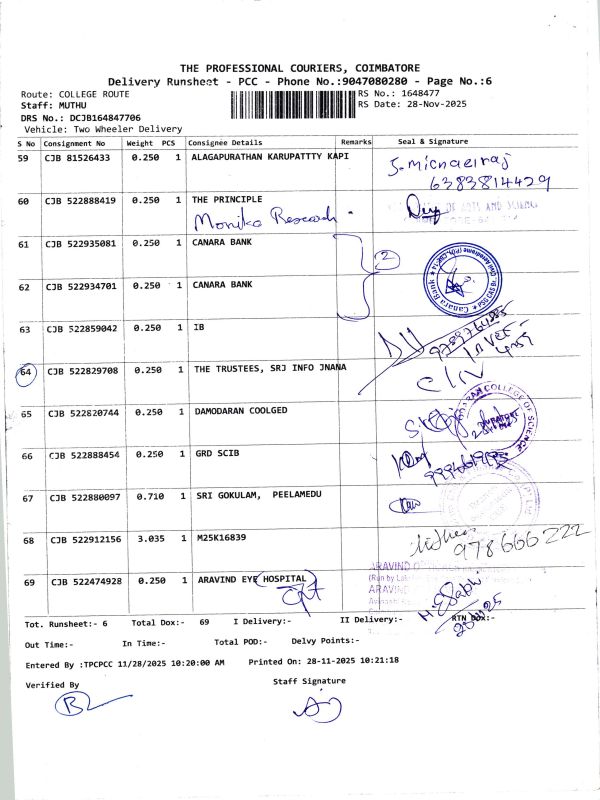 THE PROFESSIONAL COURIERS, COIMBATORE
Delivery Runsheet - PCC - Phone No.:9047080280 - Page No.:6
Route: COLLEGE ROUTE RS No.: 1648477
Staff: MUTHU RS Date: 28-Nov-2025
DRS No.: DCJB164847706
Vehicle: Two Wheeler Delivery
S No Consignment No Weight PCS Consignee Details Remarks Seal & Signature
59 CJB 81526433 0.250 1 ALAGAPURATHAN KARUPATTTY KAPI
S. Michaelraj
6383814429
60 CJB 522888419 0.250 1 THE PRINCIPLE
Monika Research
OF ARTS AND SCIENCE
61 CJB 522935081 0.250 1 CANARA BANK
2
62 CJB 522934701 0.250 1 CANARA BANK
Canara Bank
63 CJB 522859042 0.250 1 IB
64 CJB 522829708 0.250 1 THE TRUSTEES, SRJ INFO JNANA
65 CJB 522820744 0.250 1 DAMODARAN COOLGED
COLLEGE OF SCIENCE
66 CJB 522888454 0.250 1 GRD SCIB
67 CJB 522880097 0.710 1 SRI GOKULAM, PEELAMEDU
68 CJB 522912156 3.035 1 M25K16839
978 666 222
ARAVIND
69 CJB 522474928 0.250 1 ARAVIND EYE HOSPITAL
ARAVIND
Tot. Runsheet:- 6 Total Dox:- 69 I Delivery:- II Delivery:- RTN Dox:-
Out Time:- In Time:- Total POD:- Delvy Points:-
Entered By :TPCPCC 11/28/2025 10:20:00 AM Printed On: 28-11-2025 10:21:18
Verified By Staff Signature